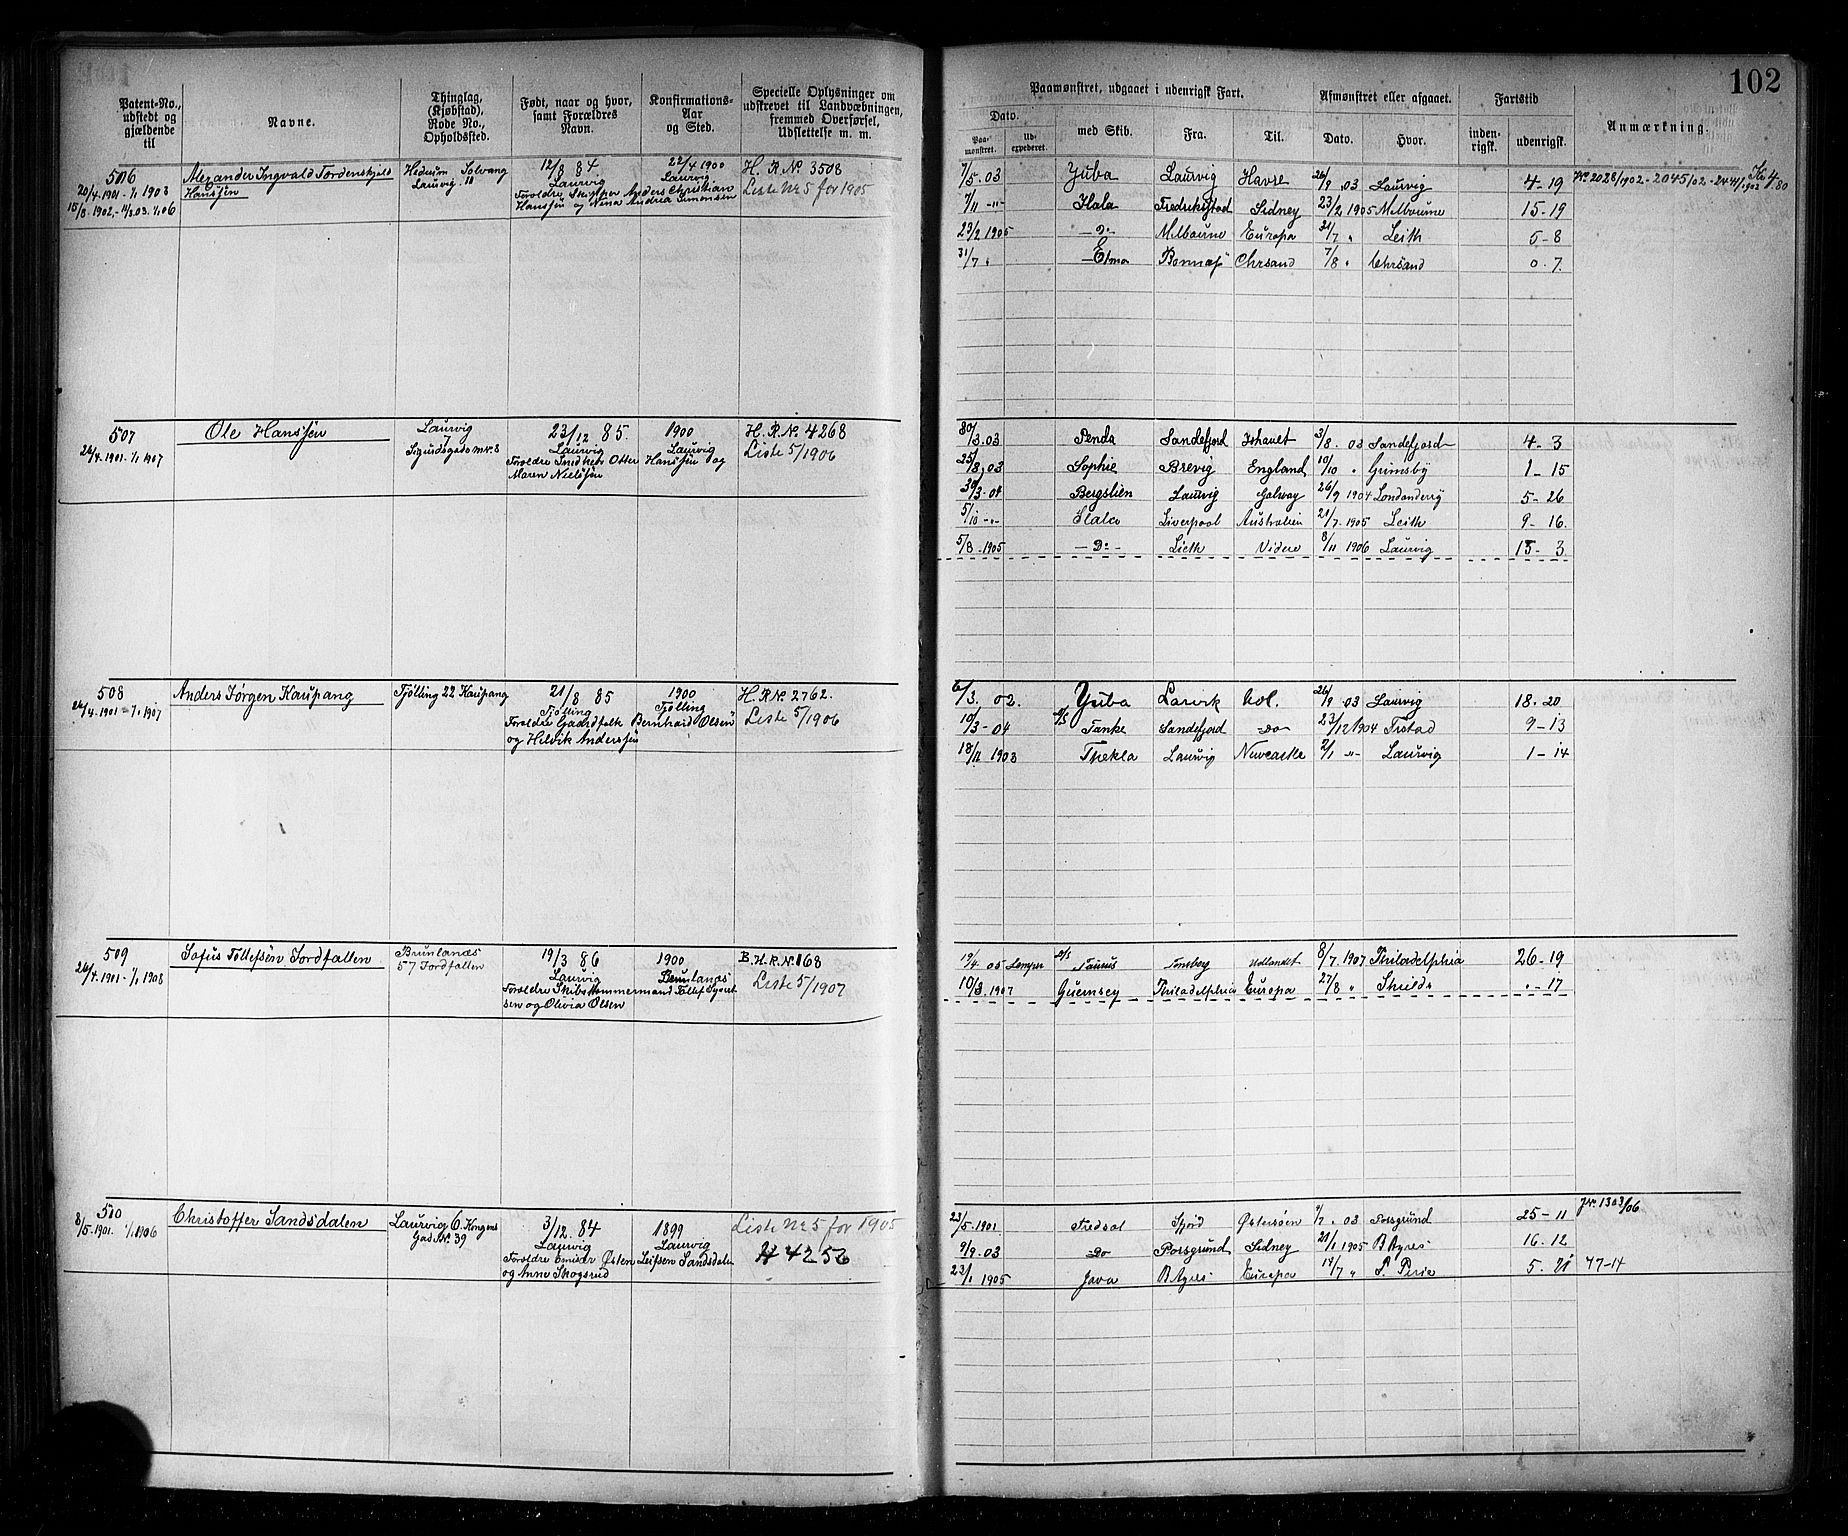 102
Patent-No., udstedt og gjældende til
Navne.
Thinglag, (Kjøbstad), Rode No., Opholdssted.
Født, naar og hvor, samt Forældres Navn.
Konfirmations-Aar og Sted.
Specielle Oplysninger om udskrevet til Landvæbningen, fremmed Overførsel, Udslettelse m. m.
Paamønstret, udgaaet i udenrigsk Fart.
Dato.
Paamønstret.
udexpederet.
med Skib.
Fra.
Til.
Afmønstret eller afgaaet.
Dato.
Hvor.
Fartstid
indenrigsk.
udenrigsk.
Anmærkning.
506
20/4.1901 - 1/1 1903
15/8.1902.- 11/2 03. 1/1 06
Alexander Ingvald Tordenskjold
Hanssen
Hedrum Solvang
Laurvig. 10
12/8 84
Laurvig
Forældre Skipper Anders Christian
Hanssen og Nina Andrea Simonsen
22/4 1900
Laurvig
H. R. Nº 3508
Liste Nr 5 for 1905
7/5.03 Yuba Laurvig Havre 26/9 03 Laurvig 4-19 Nº 2028/1902 - 2045/02 - 2441/1902 Kr 4,80
7/11 -"- Hala Fredrikstad Sidney 23/2 1905 Melbourne 15-19
23/2 1905 - Do - Melbourne Europa 31/7 " Leith 5-8
31/7 " Elma Chrsand 7/8 " Chrsand 0. 7.
507
26/4.1901- 1/1 1907
Ole Hanssen
Laurvig
7
Sigurdsgade nr. 8
23/12 85.
Laurvig
Forældre Snedker Otter Hanssen og
Maren Nielsen
1900
Laurvig
H. R. Nº 4268
Liste 5/1906
30/3.03 Penda Sandefjord Ishavet 3/8. 03 Sandefjord 4-3
25/8,03 Sophie Brevig England 10/10 " Grimsby 1-15
30/3-04 Bergslien Laurvig Galway 26/9 1904 Londonderry 5-26
5/10 -"- Hala Liverpool Australien 21/7. 1905 Leith 9-16.
5/8.1905 - Do - Lieth Videre 8/11 1906 Laurvig 15-3
508
26/4.1901 - 1/1 1907
Anders Jørgen Kaupang
Tjølling 22 Kaupang
21/8 85
Tjølling
Forældre Gaardfolk Bernhard Olsen
og Helvik Anderssen
1900
Tjølling
H. R. Nº 2762.
Liste 5/1906
6/3. 02. Yuba Larvik Hol. 26/9 03 Laurvig 18.20
10/3-04 D/S Tanke Sandefjord Do 23/12 1904 9-13
18/11 1903 Thekla Laurvig Newcastle 2/1 -"- Laurvig 1-14
509
26/4.1901- 1/1 1908
Sofus Tollefsen Jordfallen
Brunlanæs
57 Jordfallen
19/3 86
Laurvig
Forældre Skibstømmermand Tollef
sen og Olivia Olsen
1900
Brunlanæs
B. H. R. Nº 168
Liste 5/1907
19/4 05 D/S Taurus Tønsberg Udlandet 8/7 1907 Philadelphia 26-19
10/8.1907 Guernsey Philadelphia Europa 27/8 " Shields "-17
510
8/5.1901. 1/1 1906
Christoffer Sandsdalen
Laurvig 6. Kongens
Gade Nº 39
3/12. 84
Laurvig
Forældre Østen Leifsen Sandsdalen
og Anne Skogsrud
1899
Laurvig
Liste Nr 5 for 1905
4256
23/5.1901 Fredsæl Fjord Østersøen 9/7. 03 Porsgrund 25-11 J Nº 1303/06
9/9.03 Do Porsgrund Sidney 21/1 1905 B Ayres 16.12
23/1 1905 Java B Ayres Europa 14/7 " 5. 21 47-14